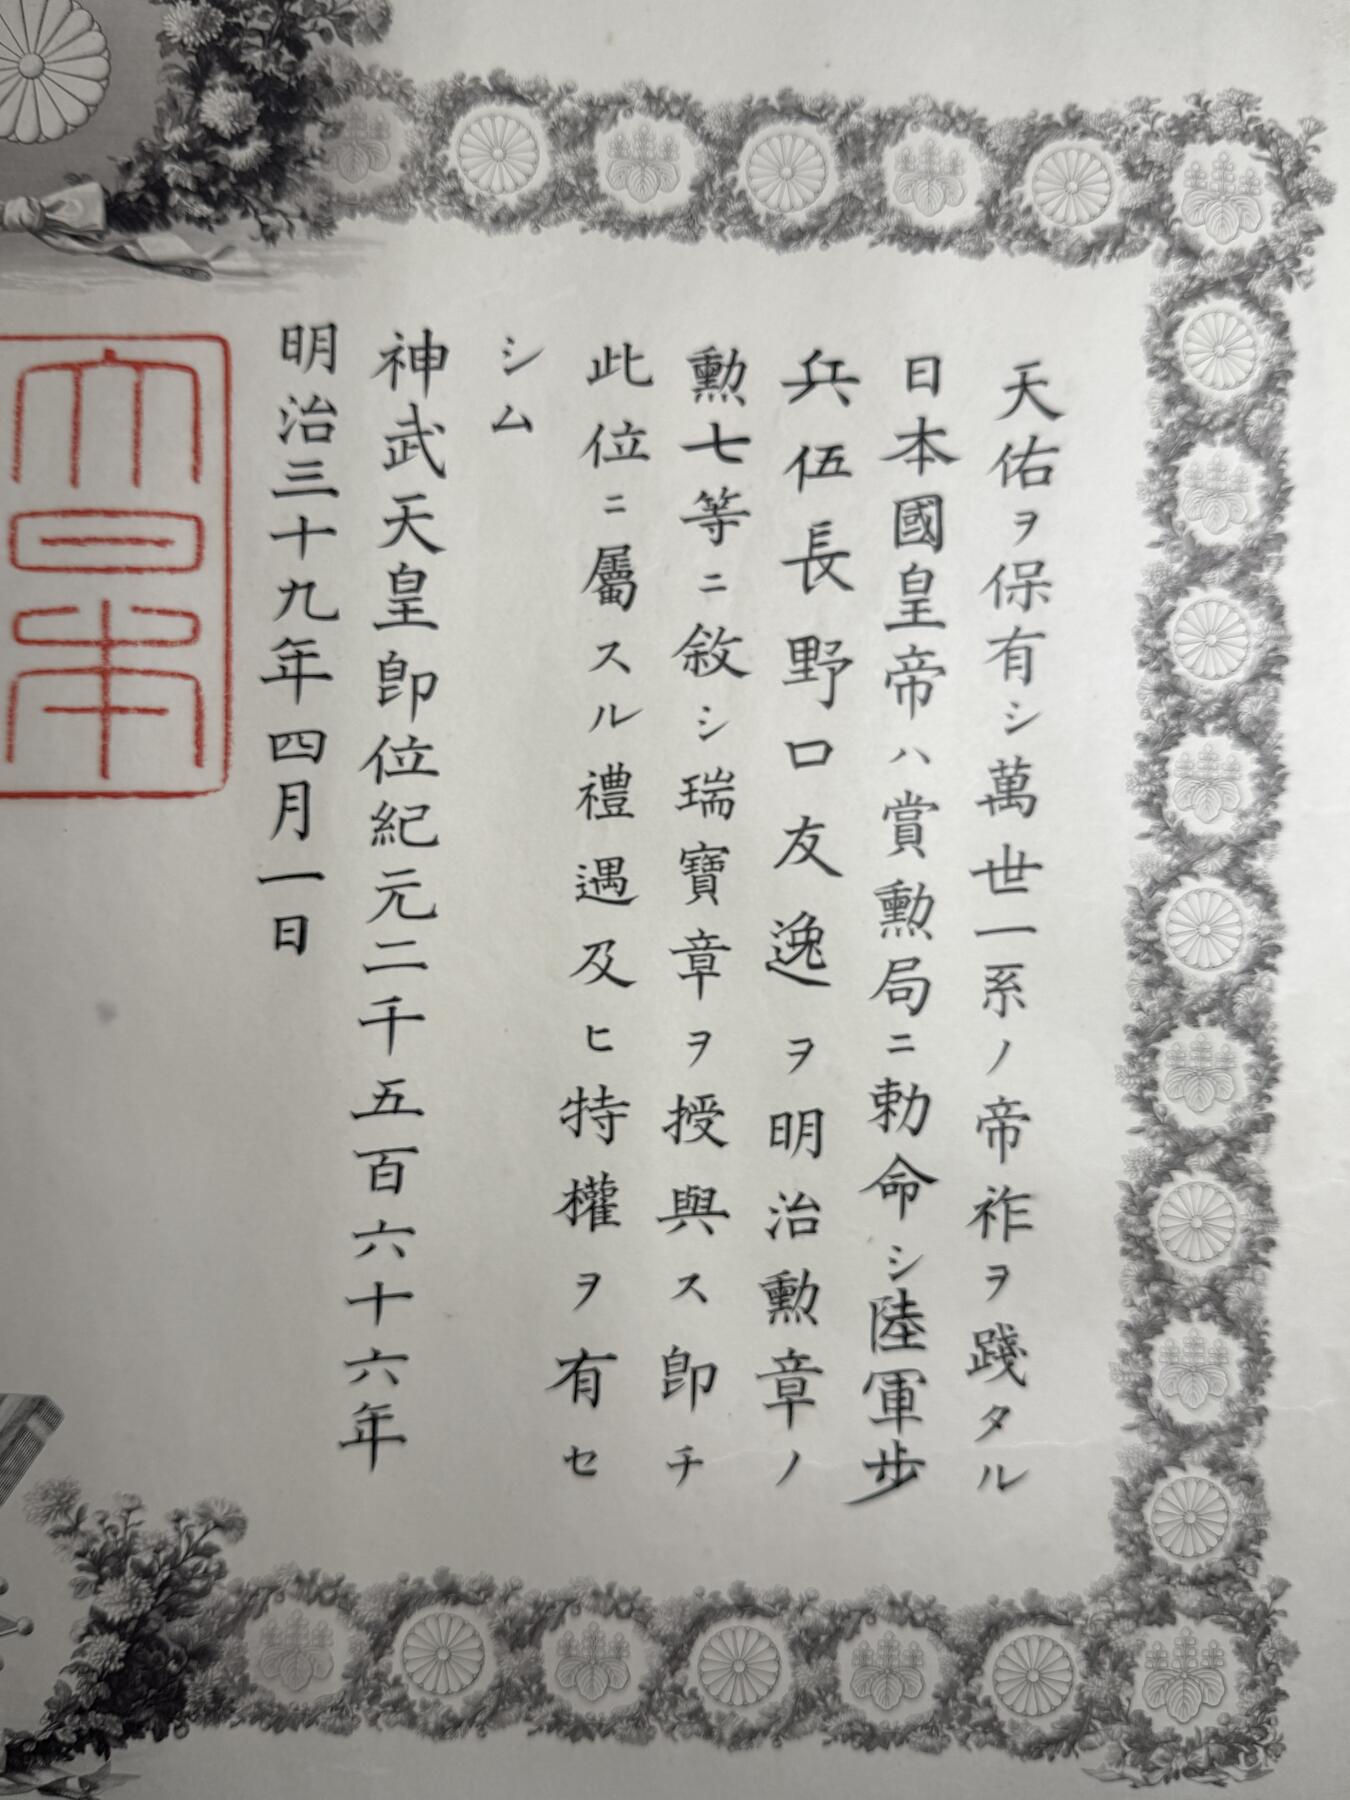 天佑ヲ保有シ萬世一系ノ帝祚ヲ踐タル
日本國皇帝ハ賞勲局ニ勅命シ陸軍歩
兵伍長野口友逸ヲ明治勲章ノ
勲七等ニ敘シ瑞寶章ヲ授與ス卽チ
此位ニ屬スル禮遇及ヒ特權ヲ有セ
シム
神武天皇卽位紀元二千五百六十六年
明治三十九年四月一日
大日本